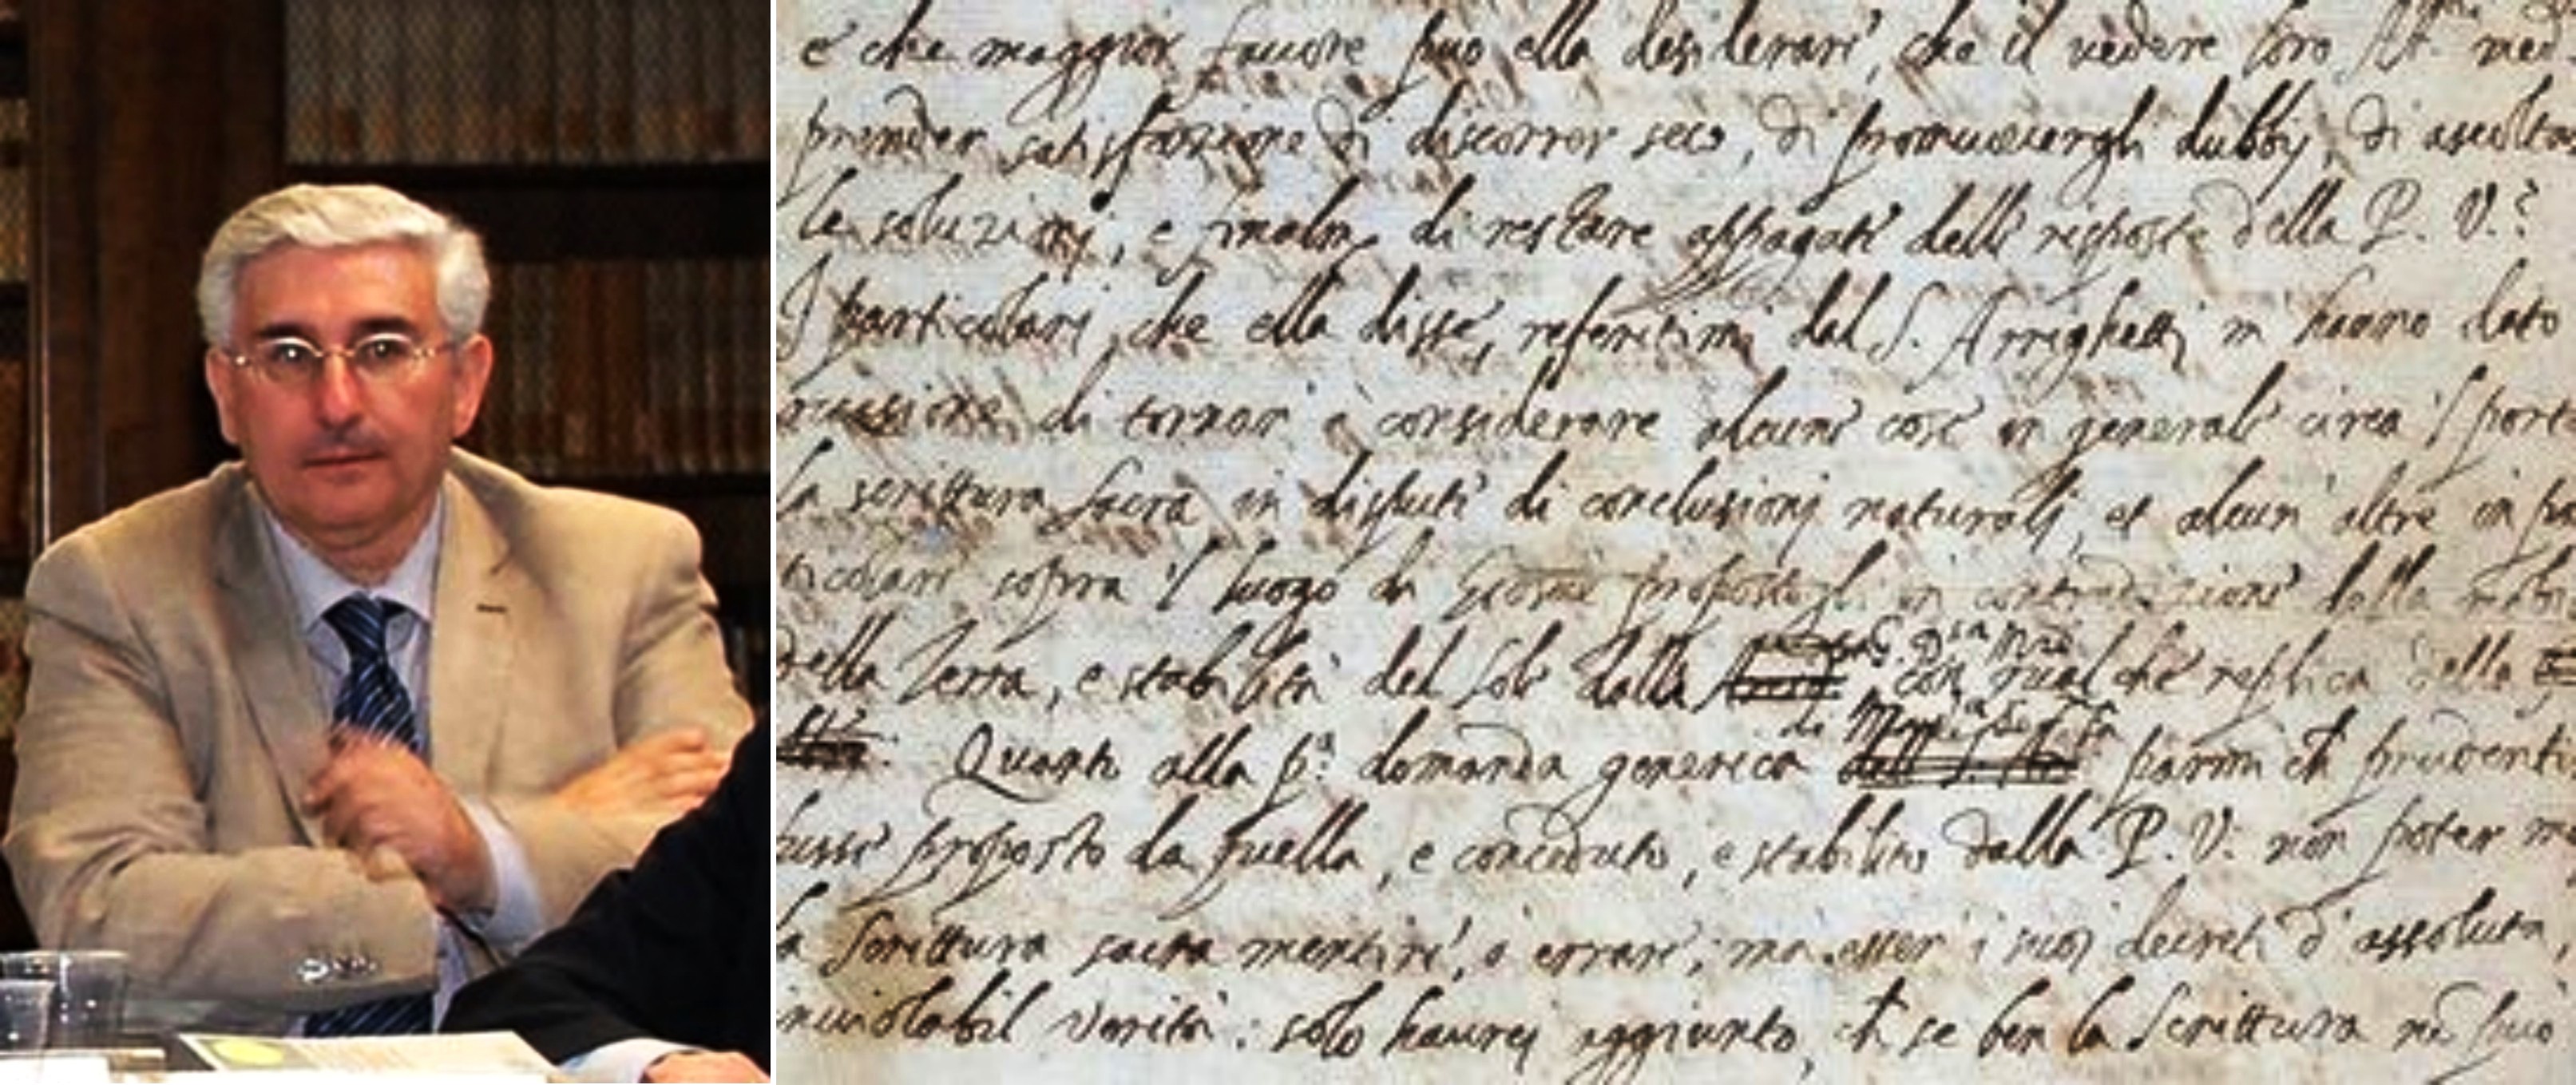 e che maggior fauore può ella desiderare, che il uedere loro Alt. med.
prender satisfazione di discorrer seco, di promuouergli dubbij, di ascoltar
le soluzioni, e finalm. di restare appagate delle risposte della P. V.?
I particolari che ella disse, referitimi dal S. Arrighetti m' hanno dato
di tornar a considerare alcune cose in generale circa 'l port
la scrittura sacra in dispute di conclusioni naturali, et alcun' altre in pa
ticolare sopra 'l luogo di Giosue propostogli in contradizione della mobi
della Terra, e stabilità del Sole dalla con qualche replica della
Quanto alla p.a domanda generica di Mad.a Ser.ma parmi ch prudenti
fusse proposto da quella, e conceduto, e stabilito dalla P. V. non poter m
la Scrittura sacra mentire, o errare; ma esser i suoi decreti d'assoluta,
inuiolabil verità: solo haurei aggiunto, ch se ben la Scrittura nō può